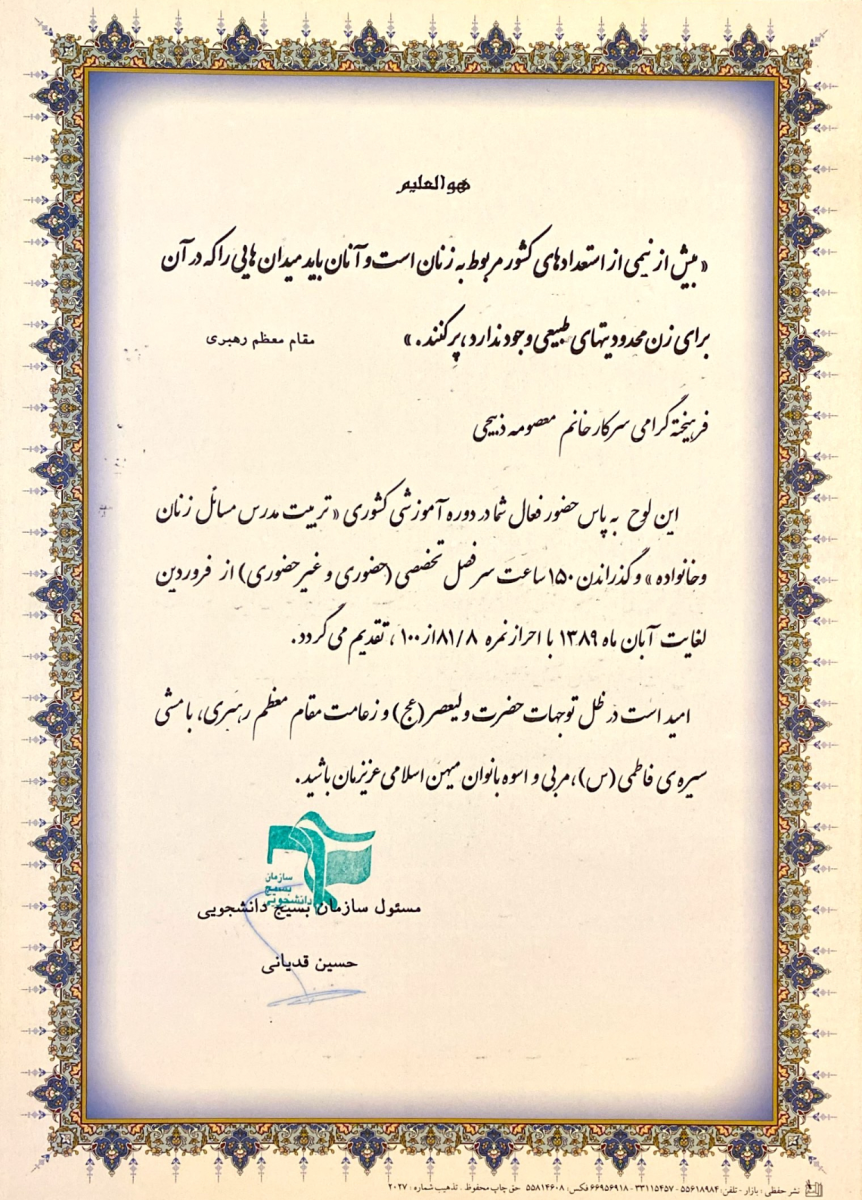 هو العلیم
« بیش از نیمی از استعدادهای کشور مربوط به زنان است و آنان باید میدان هایی را که در آن
برای زن محدودیتهای طبیعی وجود ندارد، پر کنند. » مقام معظم رهبری
فرهیخته گرامی سرکار خانم معصومه ذبیحی
این لوح به پاس حضور فعال شما در دوره آموزشی کشوری « تربیت مدرس مسائل زنان
و خانواده » و گذراندن ۱۵۰ ساعت سرفصل تخصصی (حضوری و غیر حضوری) از فروردین
لغایت آبان ماه ۱۳۸۹ با احراز نمره ۸۱/۸ از ۱۰۰ ، تقدیم می گردد.
امید است در ظل توجهات حضرت ولیعصر (عج) و زعامت مقام معظم رهبری، با مشی
سیره ی فاطمی (س)، مربی و اسوه بانوان میهن اسلامی عزیزمان باشید.
سازمان
بسیج
دانشجویی
مسئول سازمان بسیج دانشجویی
حسین قدیانی
نشر حفظی : بازار - تلفن: ۵۵۶۱۸۹۸۴ - ۳۳۱۱۵۴۵۷ - ۶۶۹۵۶۹۱۸ فکس: ۵۵۸۱۴۶۰۸ حق چاپ محفوظ . تذهیب شماره : ۲۰۲۷